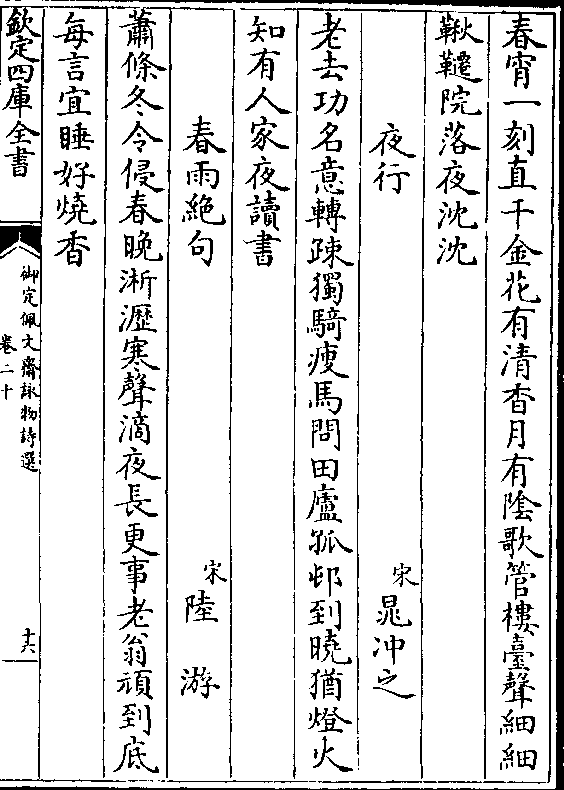 春宵一刻直千金花有清香月有陰歌管樓臺聲細細
鞦韆院落夜沈沈
夜行
宋
晁冲之
老去功名意轉疎獨騎瘦馬問田廬孤邨到曉猶燈火
知有人家夜讀書
春雨絶句
宋
陸游
蕭條冬令侵春晚淅瀝寒聲滴夜長更事老翁頑到底
每言宜睡好燒香
欽定四庫全書
御定佩文齋詠物詩選
卷二十
十六